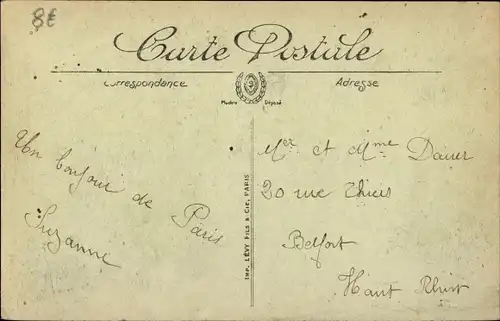 8€
Carte Postale
Correspondance
Adresse
Modèle Déposé
Un bonjour de Paris
Suzanne
IMP. LÉVY FILS & CIE, PARIS
Mer et Mme Dauer
20 rue Thiers
Belfort
Haut Rhin